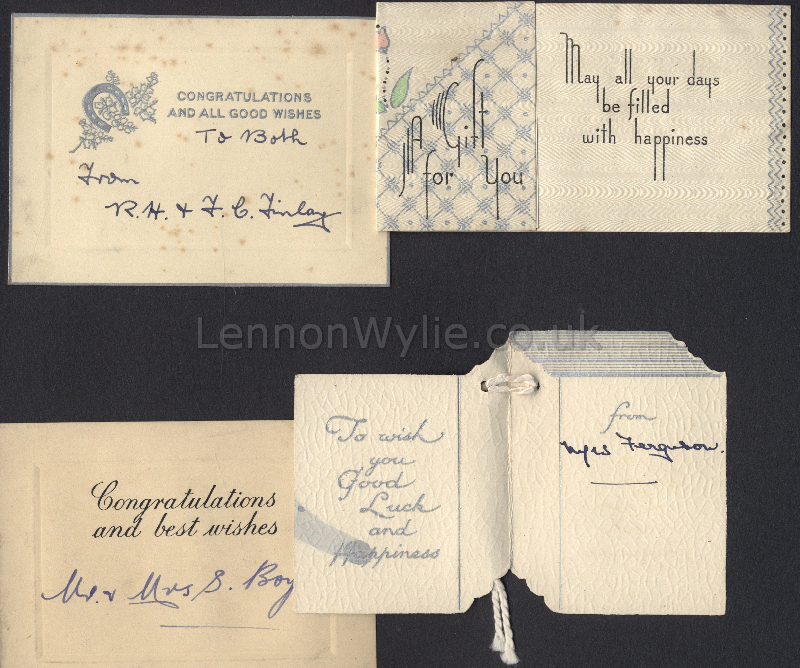 CONGRATULATIONS
AND ALL GOOD WISHES
To Both
From
R. H. & F. C. Finlay
A Gift
for You
May all your days
be filled
with happiness
LennonWylie.co.uk
Congratulations
and best wishes
Mr. & Mrs S. Boy
To wish
you
Good
Luck
and
Happiness
from
Mrs Ferguson.